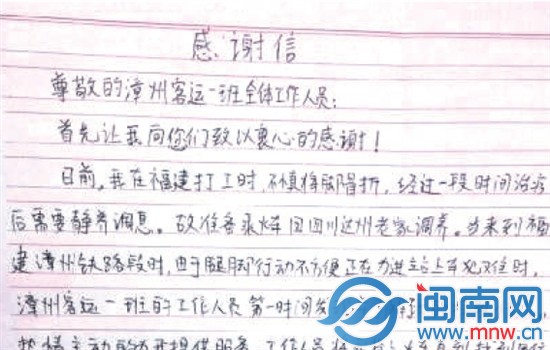 感谢信
尊敬的漳州客运一班全体工作人员:
首先让我向你们致以衷心的感谢!
日前,我在福建打工时,不慎将脚骨折,经过一段时间治疗
后需要静养调息。故准备乘火车回四川达州老家调养。当来到福
建漳州铁路段时,由于腿脚行动不方便正在为进站上车犯难时,
漳州客运一班的工作人员第一时间发
热情主动的为我提供服务 工作人员将
闽南网
www.mnw.cn